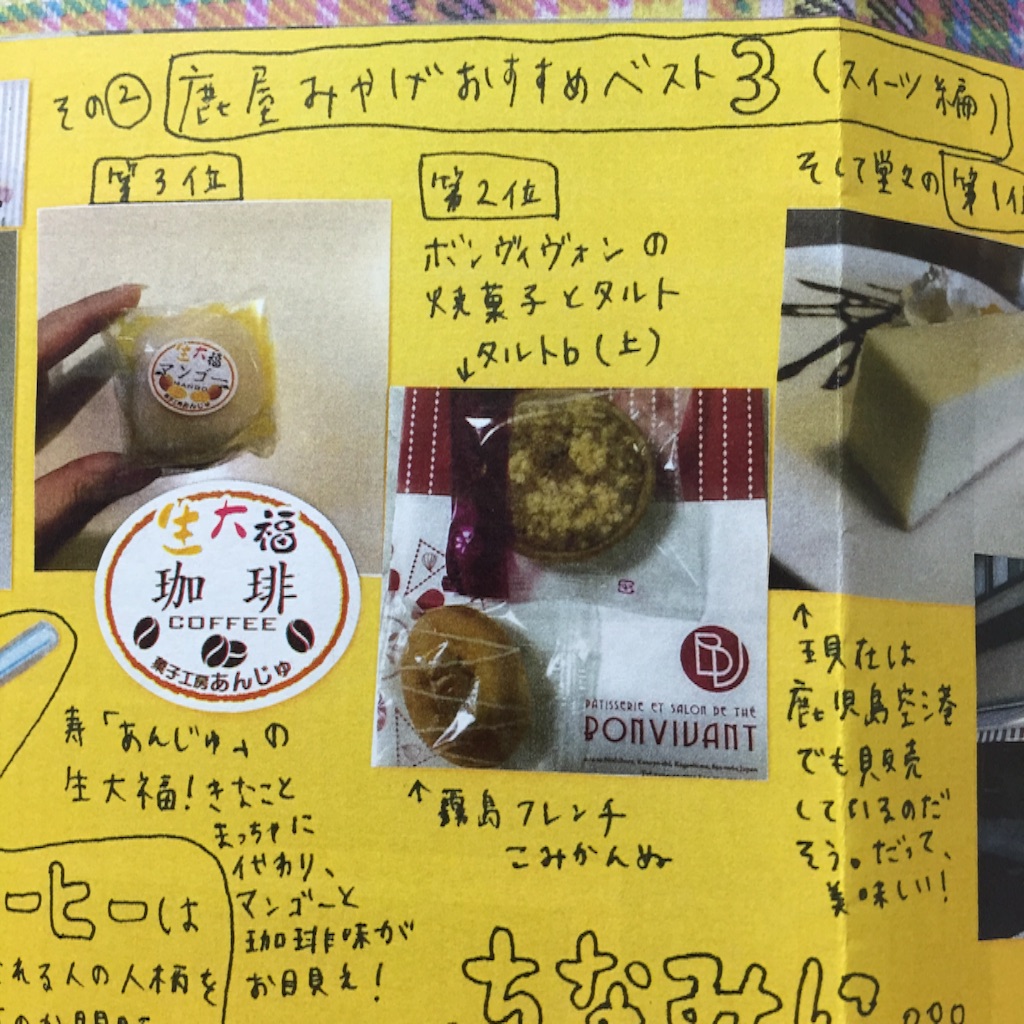 その② 鹿屋みやげおすすめベスト3(スイーツ編)
第3位
生大福
マンゴー
MANGO
生大福
珈琲
COFFEE
菓子工房あんじゅ
寿「あんじゅ」の
生大福!きなこと
まっちゃに
代わり、
マンゴーと
珈琲味が
お目見え!
第2位
ボンヴィヴォンの
焼菓子とタルト
タルトb(上)
PATISSERIE ET SALON DE THÉ
BONVIVANT
霧島フレンチ
こみかんぬ
そして堂々の第1位
現在は
鹿児島空港
でも販売
しているのだ
そう。だって、
美味しい!
ーヒーは
れる人の人柄を
ちなみに...